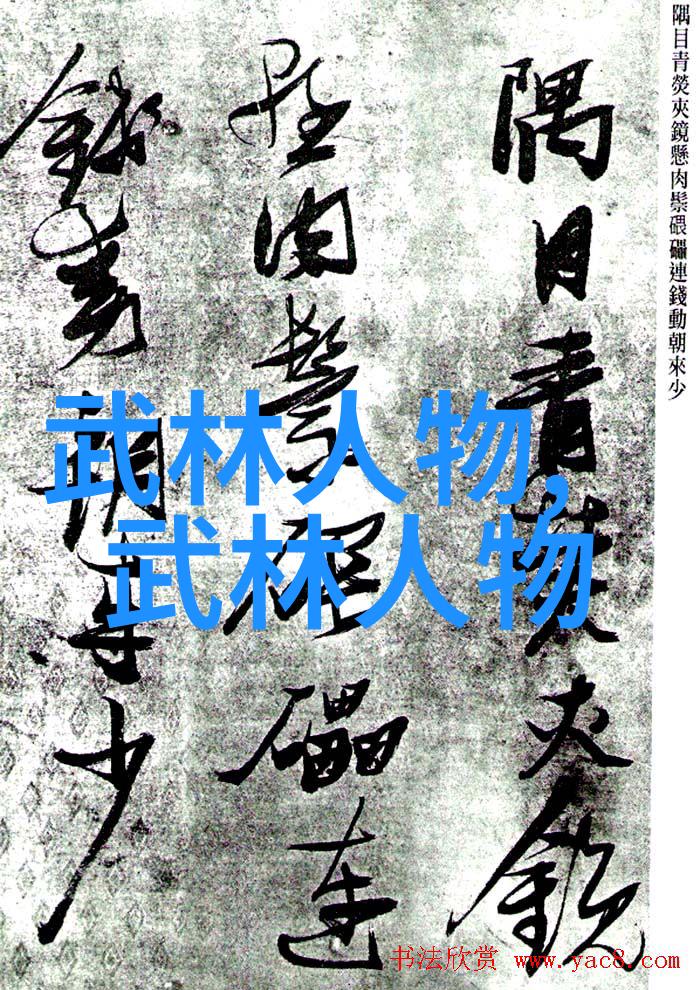 隅目青熒夾鏡懸肉鬃碨礧連錢動朝來少
隅目青熒夾鏡
懸肉鬃碨礧連
錢動朝來少
武林人物,
武林人物
书法欣赏 www.yac8.com